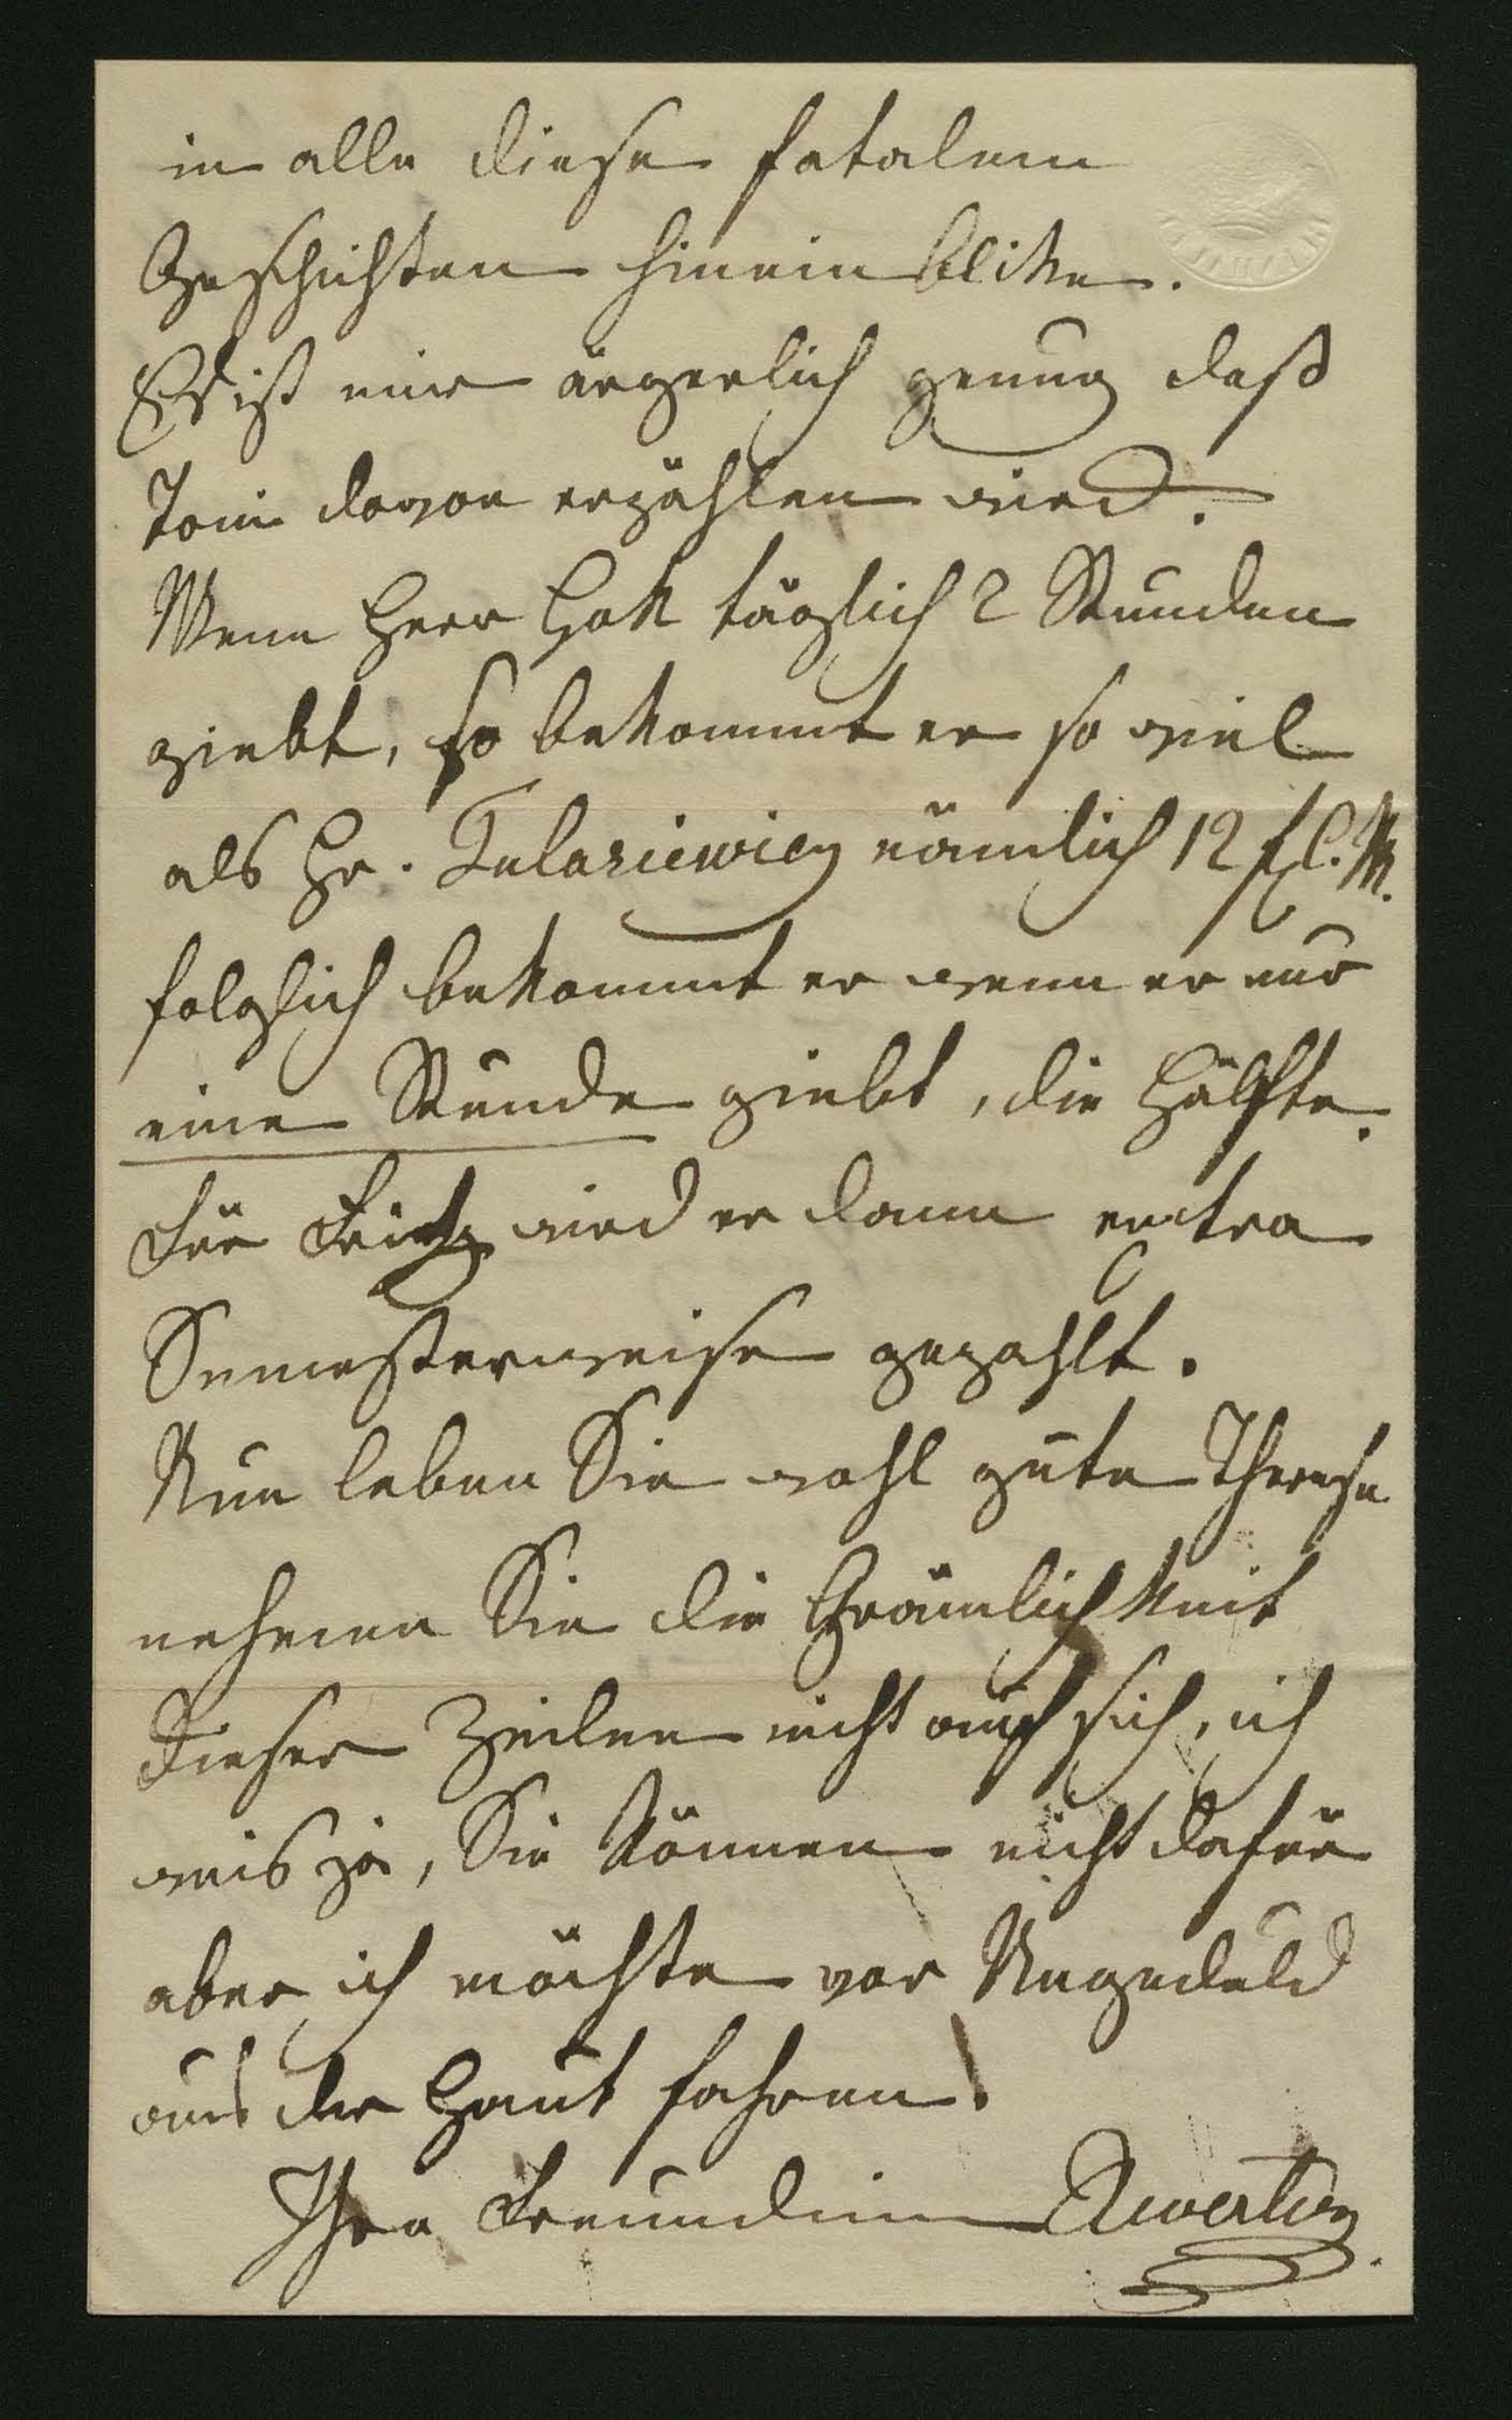 in alle diese fatalen
Geschichten hinein blike.
Es ist mir ärgerlich genug daß
Toni davon erzählen wird.
Wenn Herr Hok täglich 2 Stunden
giebt, so bekommt er so viel
als Hr. nämlich 12 fl. M.
folglich bekommt er wenn er nur
eine Stunde giebt, die Hälfte.
Für Fritz wird er dann extra
Semesterweise gezahlt.
Nun leben Sie wohl gute Therese
nehmen Sie die Grämlichkeit
Dieser Zeilen nicht auf sich, ich
weis ja, Sie können nicht dafür
aber ich möchte vor Ungeduld
aus der Haut fahren!
Ihre Freundin